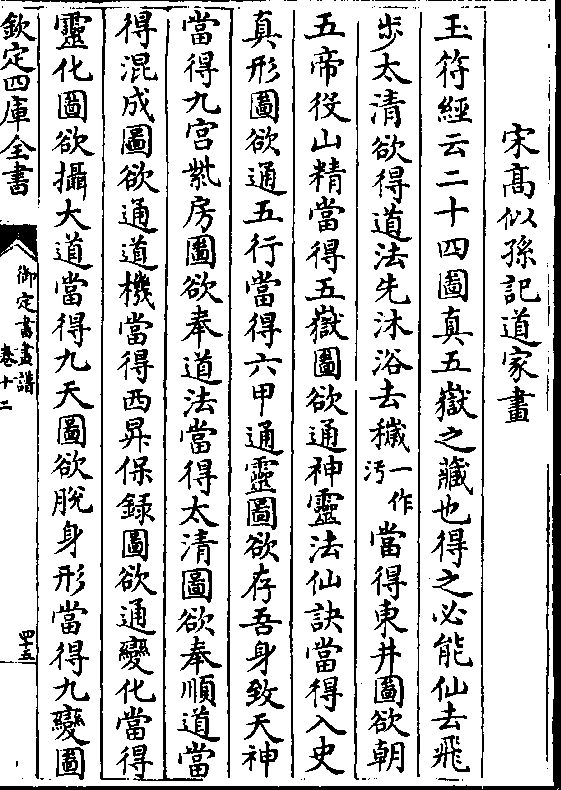 宋髙似孫記道家畫
玉符經云二十四圖真五嶽之藏也得之必能仙去飛
歩太清欲得道法先沐浴去穢一作汚當得東井圖欲朝
五帝役山精當得五嶽圖欲通神靈法仙訣當得入史
真形圖欲通五行當得六甲通靈圖欲存吾身致天神
當得九宫紫房圖欲奉道法當得太清圖欲奉順道當
得混成圖欲通道機當得西昇保録圖欲通變化當得
靈化圖欲攝大道當得九天圖欲脱身形當得九變圖
欽定四庫全書
御定書畫譜
卷十二
四十五